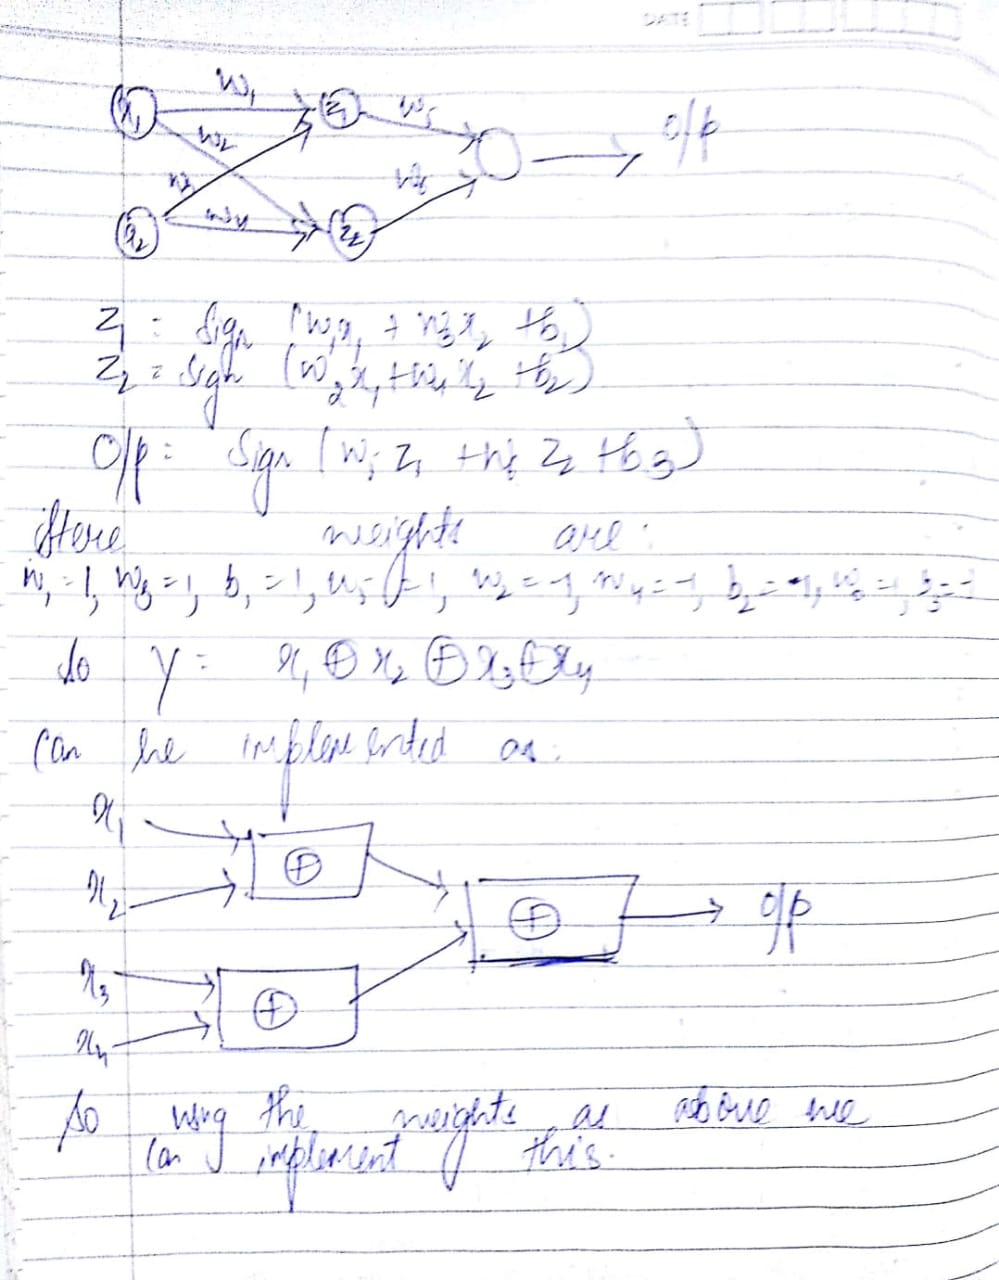 DATE
x₁ w₁ z₁ w₅ o/p
w₂
w₃ w₆
x₂ w₄ z₂
z₁ = Sign (w₁x₁ + w₃x₂ + b₁)
z₂ = Sign (w₂x₁ + w₄x₂ + b₂)
O/p = Sign (w₅ z₁ + w₆ z₂ + b₃)
Here weights are:
w₁ = 1, w₃ = 1, b₁ = 1, w₅ = 1, w₂ = -1, w₄ = -1, b₂ = w₆ = 1, b₃ = -1
So Y = x₁ ⊕ x₂ ⊕ x₃ ⊕ x₄
Can be implemented as:
x₁
⊕
x₂ ⊕ o/p
x₃
⊕
x₄
So using the weights as above we
can implement this.